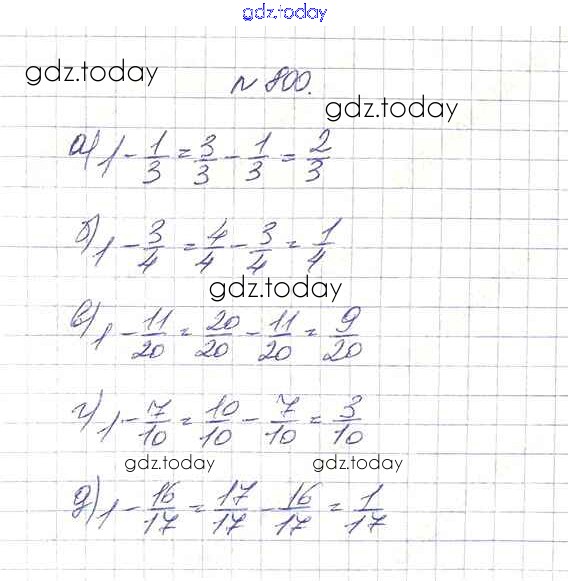 gdz.today
gdz.today
№ 800.
gdz.today
а) 1 - 1/3 = 3/3 - 1/3 = 2/3
б) 1 - 3/4 = 4/4 - 3/4 = 1/4
gdz.today
в) 1 - 11/20 = 20/20 - 11/20 = 9/20
г) 1 - 7/10 = 10/10 - 7/10 = 3/10
gdz.today gdz.today
д) 1 - 16/17 = 17/17 - 16/17 = 1/17